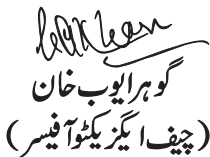 گوہر ایوب خان
(چیف ایگزیکٹو آفیسر)